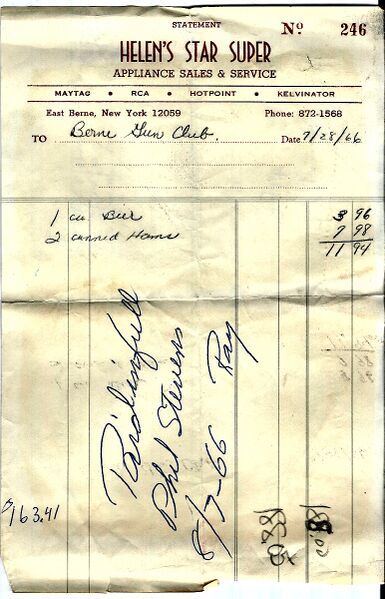 STATEMENT
Nº 246
HELEN'S STAR SUPER
APPLIANCE SALES & SERVICE
MAYTAG • RCA • HOTPOINT • KELVINATOR
East Berne, New York 12059 Phone: 872-1568
TO Berne Gun Club. Date 7/28/66
1 ca. Beer 3 96
2 canned Hams 7 98
11 94
Paid in full
Phil Stevens
8/3-66 Ray
$163.41